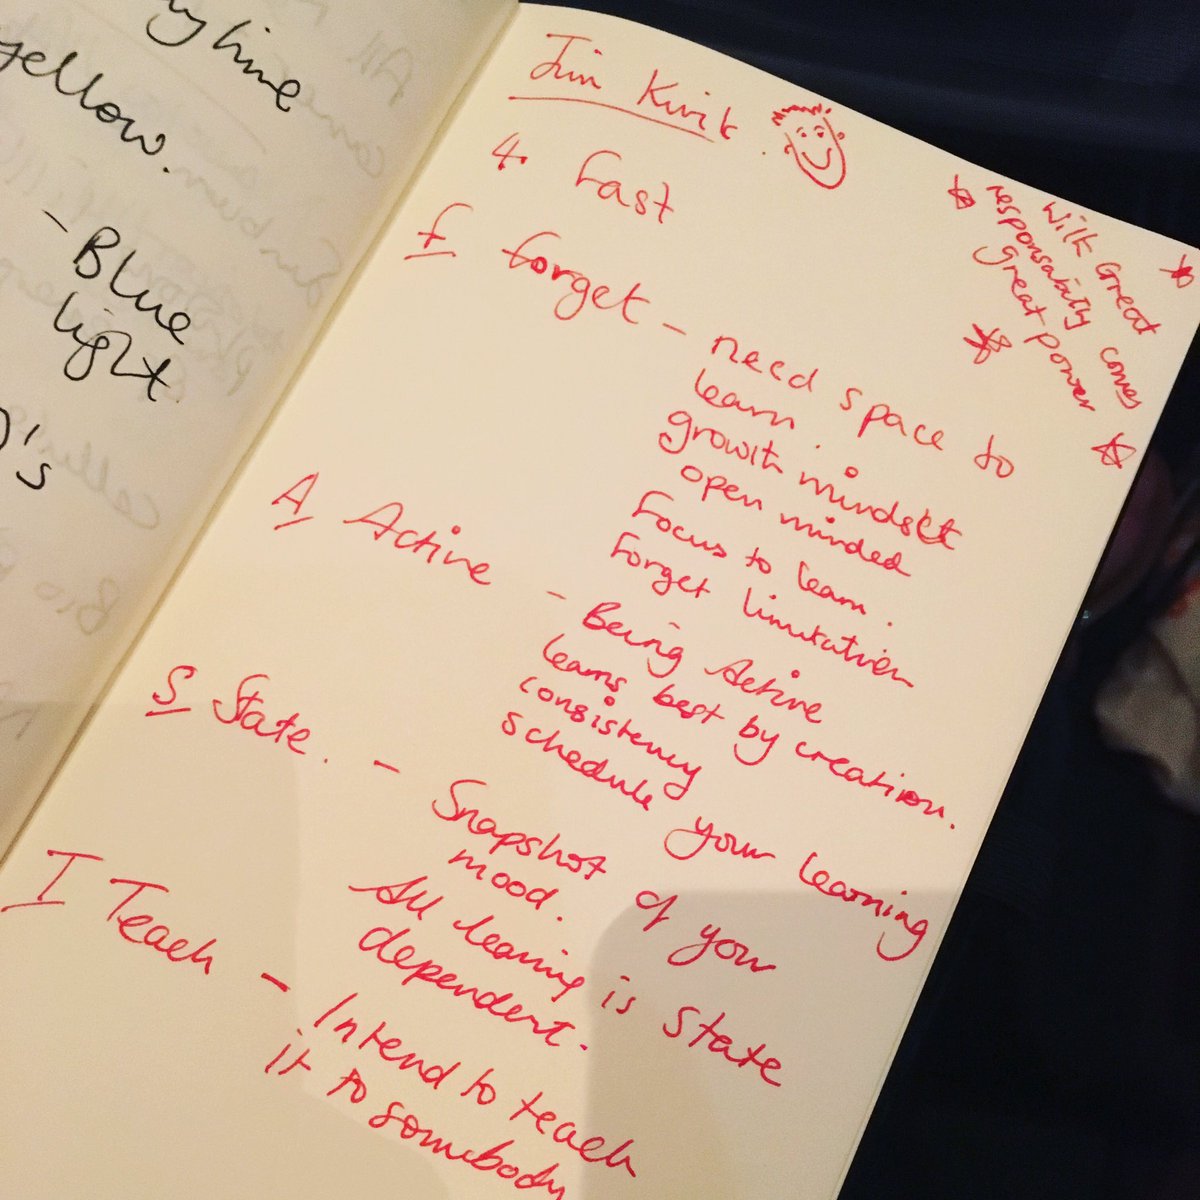 yellow.
- Blue
light
Jim Kwik.
4. Fast
With Great
responsability comes
great power
F forget - need space to
learn.
growth mindset
open minded
Focus to learn.
Forget limitation
A Active - Being Active
learns best by creation.
consistency
schedule your learning
S State. - Snapshot of your
mood.
All learning is State
dependent.
T Teach - Intend to teach
it to somebody